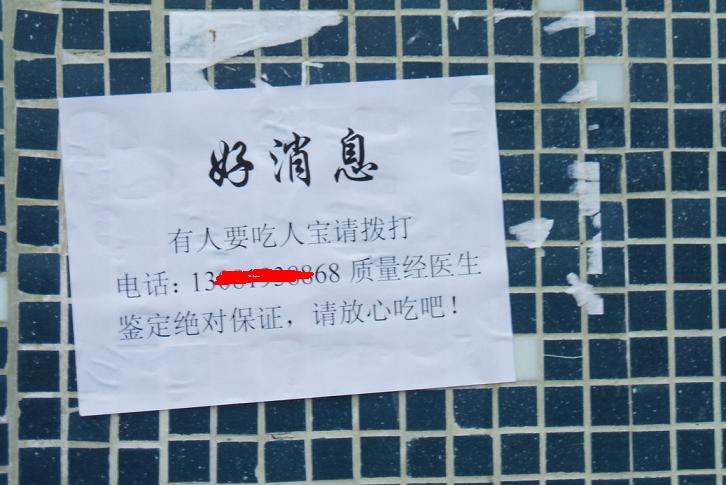 好消息
有人要吃人宝请拨打
电话：13868 质量经医生
鉴定绝对保证，请放心吃吧！